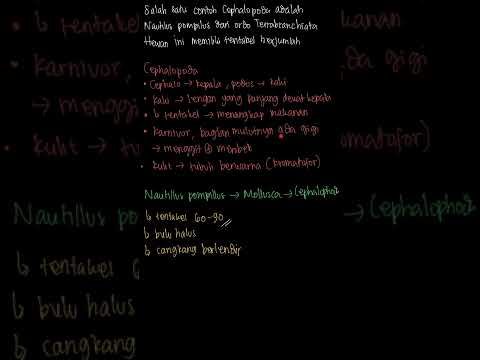 Salah satu contoh Cephalopoda adalah
Nautilus pompilus dari ordo Terrabranchiata
Hewan ini memiliki tentakel berjumlah
Cephalopoda
• Cephalo → kepala, podos → kaki
• kaki → lengan yang panjang dekat kepala
↳ tentakel → menangkap makanan
• karnivor, bagian mulutnya ada gigi
→ menggit &
• kulit → tubuh berwarna (kromatafor)
Nautillus pompilus → Mollusca → Cephalophoda
↳ tentakel 60-90
↳ bulu halus
↳ cangkang berlendir